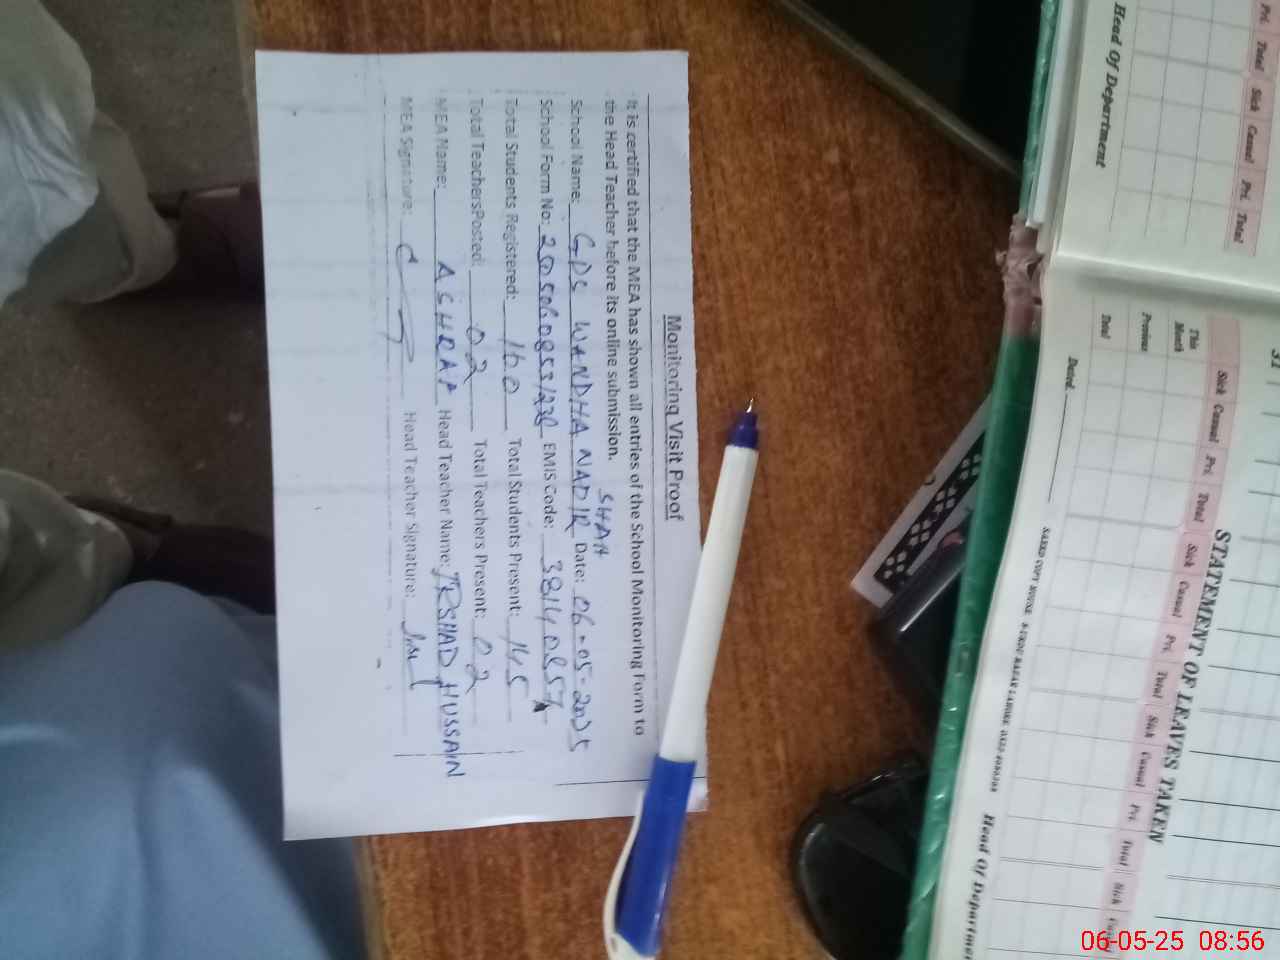 Monitoring Visit Proof
It is certified that the MEA has shown all entries of the School Monitoring Form to
the Head Teacher before its online submission.
SHAH
School Name: GPS WANDHA NADIR Date: 06-05-2025
School Form No: EMIS Code:
Total Students Registered: 160 Total Students Present: 145
Total TeachersPosted: 02 Total Teachers Present: 02
MEA Mame: ASHRAF Head Teacher Name: IRSHAD HUSSAIN
MEA Signature: Head Teacher Signature:
Pri. Total Sick Casual Pri. Total
Head Of Department
31
STATEMENT OF LEAVES TAKEN
Sick Casual Pri. Total Sick Casual Pri. Total Sick Casual Pri. Total Sick
This Month
Previous
Total
Dated
Head Of Departmen
06-05-25 08:56